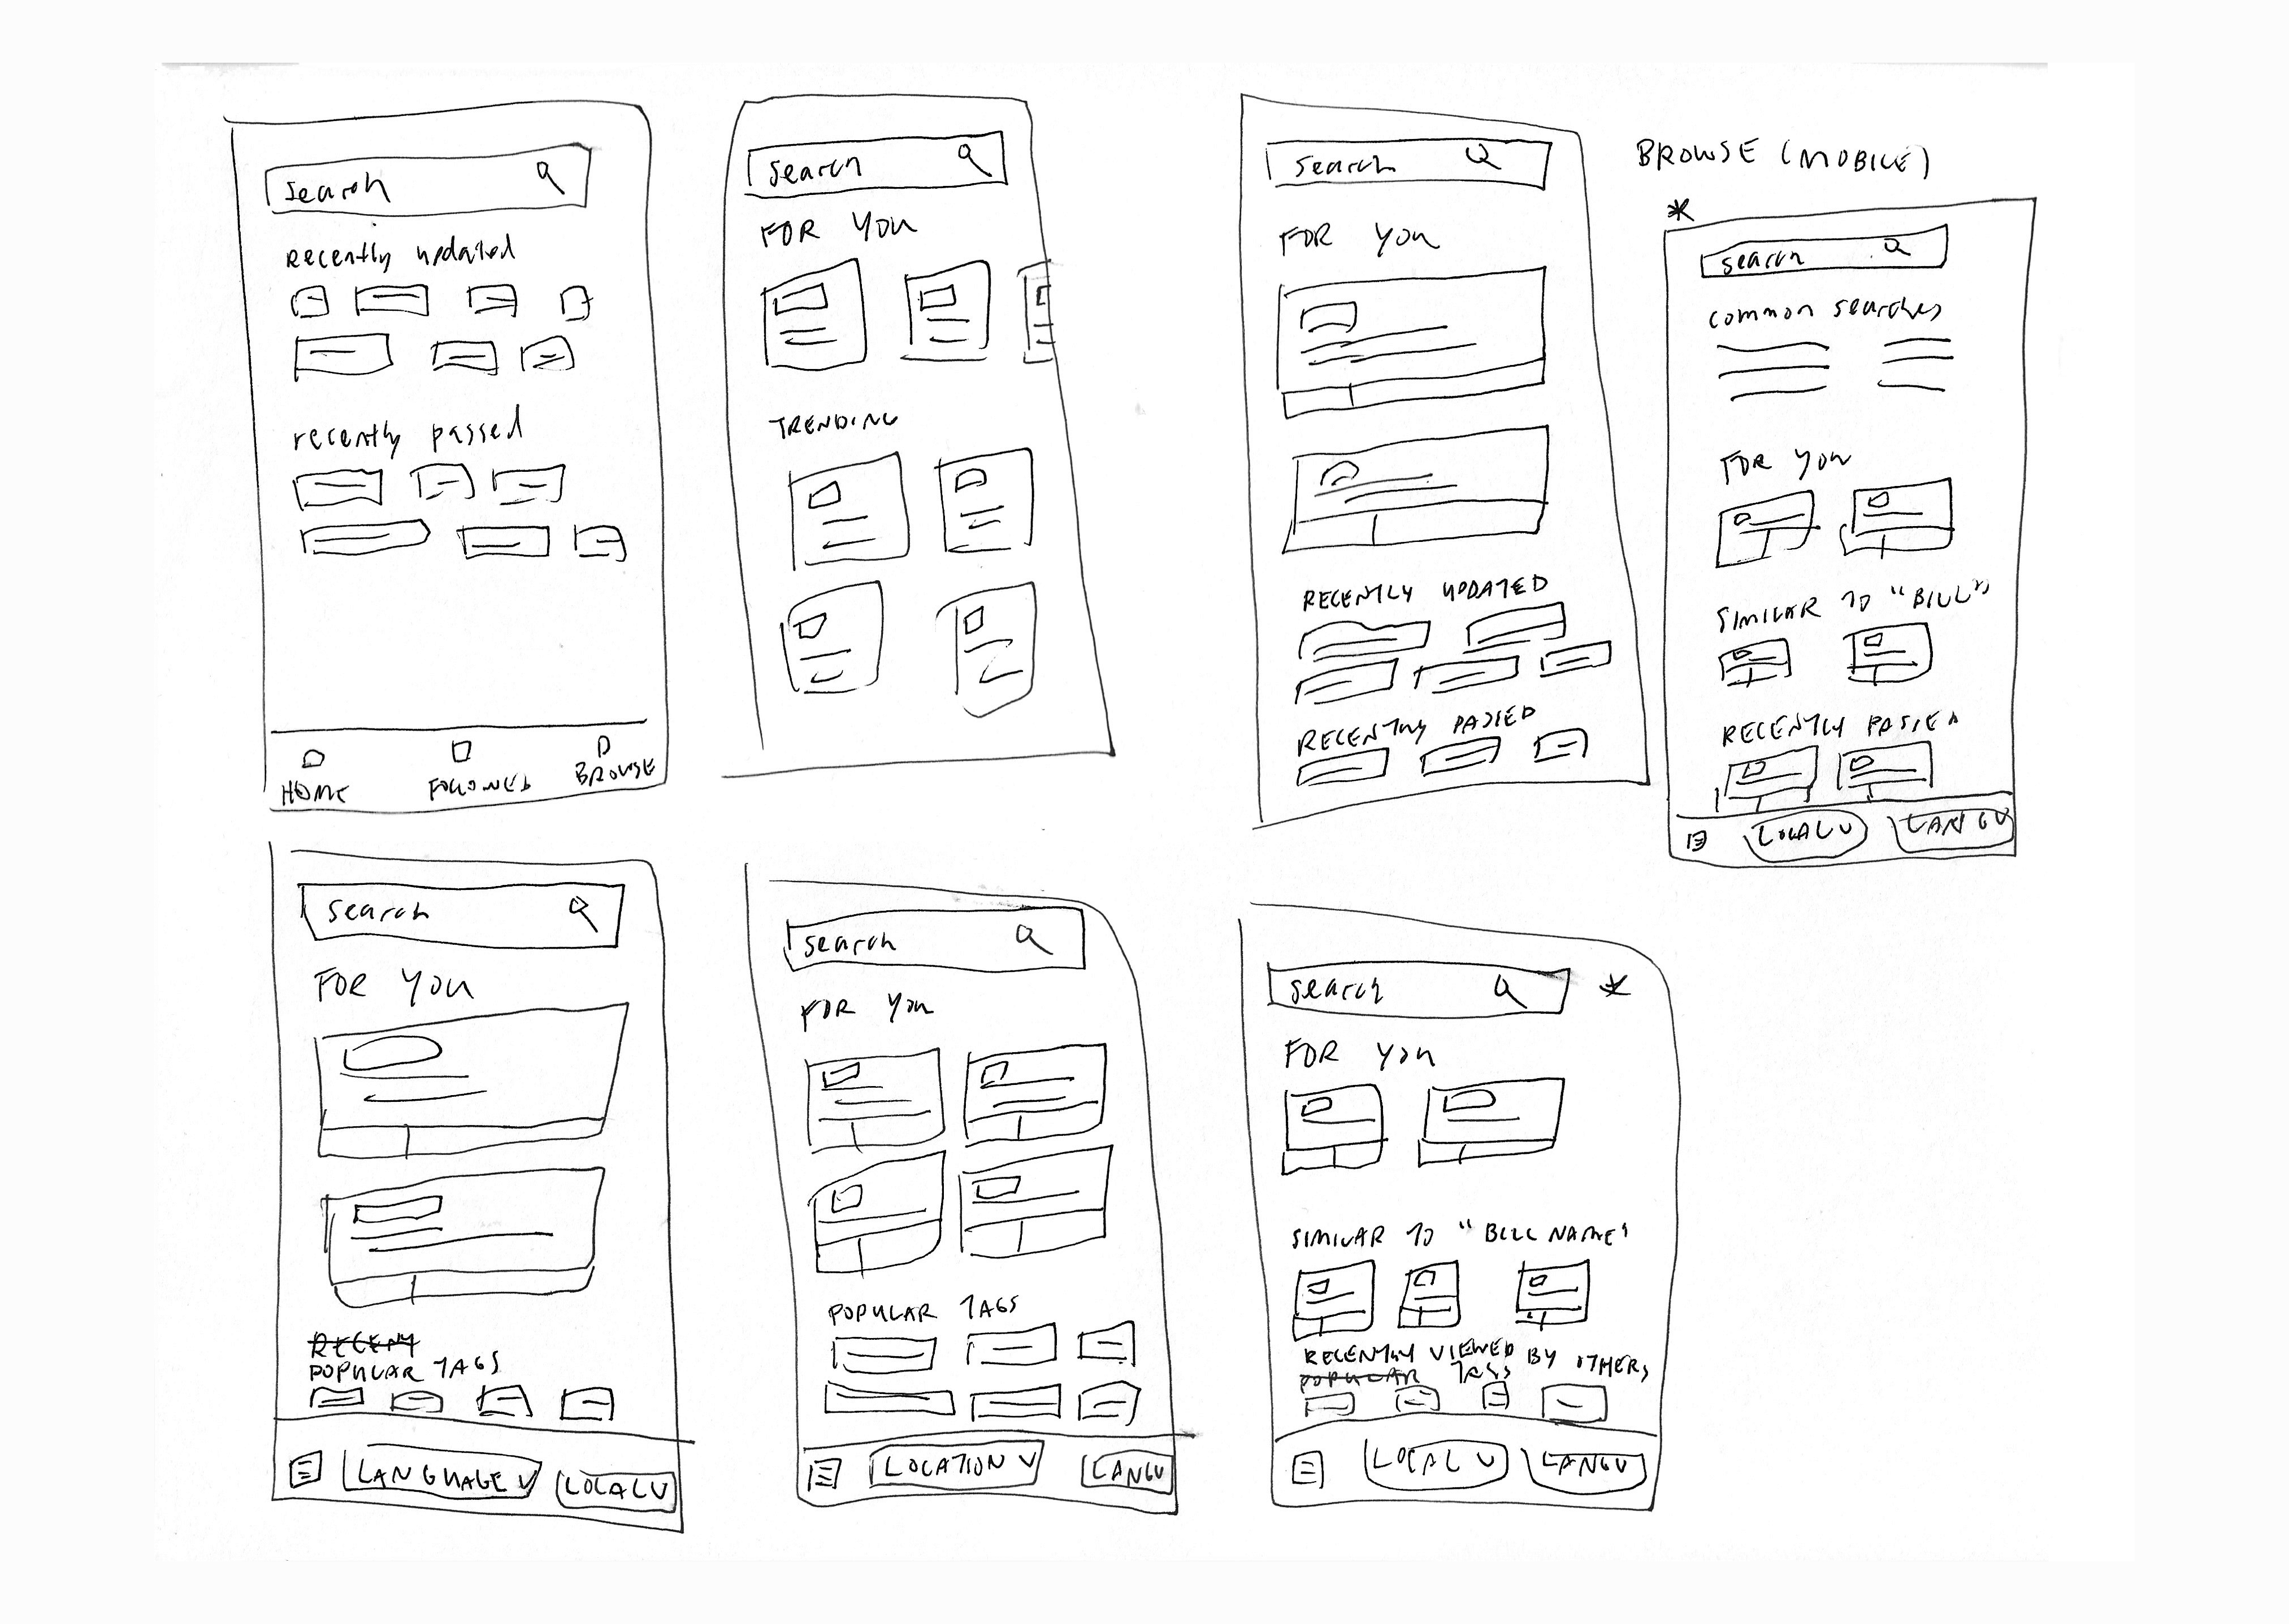 BROWSE (MOBILE)
search
recently updated
recently passed
HOME
FOLLOWED
BROWSE
search
FOR YOU
TRENDING
search
FOR YOU
RECENTLY UPDATED
RECENTLY PASSED
*
search
common searches
FOR YOU
SIMILAR TO "BILL"
RECENTLY PASSED
LOCAL V
LANG V
search
FOR YOU
RECENT
POPULAR TAGS
LANGUAGE V
LOCAL V
search
FOR YOU
POPULAR TAGS
LOCATION V
LANG V
search *
FOR YOU
SIMILAR TO "BILL NAME"
RECENTLY VIEWED BY OTHERS
POPULAR TAGS
LOCAL V
LANG V